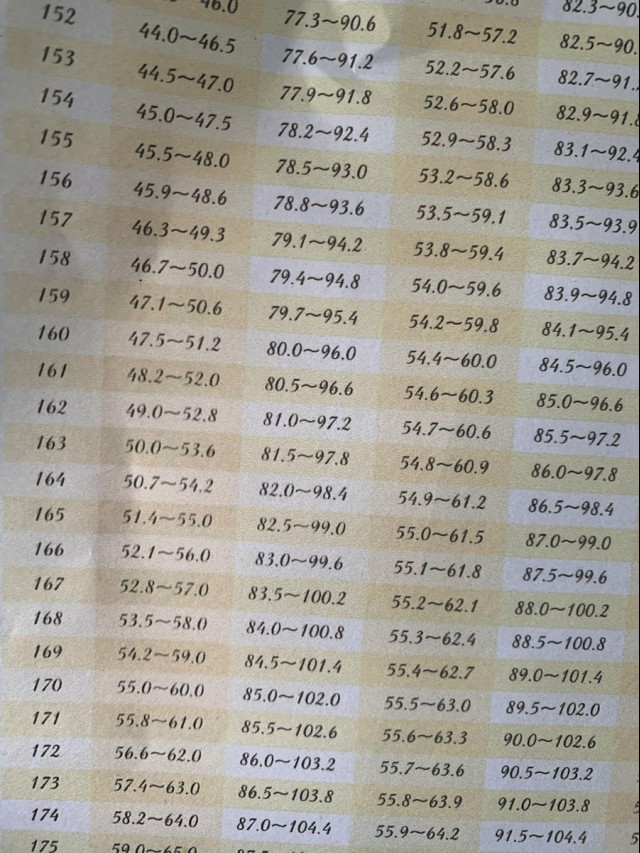 46.0 77.3~90.6 51.8~57.2 82.5~90.
152 44.0~46.5 77.6~91.2 52.2~57.6 82.7~91.
153 44.5~47.0 77.9~91.8 52.6~58.0 82.9~91.8
154 45.0~47.5 78.2~92.4 52.9~58.3 83.1~92.4
155 45.5~48.0 78.5~93.0 53.2~58.6 83.3~93.6
156 45.9~48.6 78.8~93.6 53.5~59.1 83.5~93.9
157 46.3~49.3 79.1~94.2 53.8~59.4 83.7~94.2
158 46.7~50.0 79.4~94.8 54.0~59.6 83.9~94.8
159 47.1~50.6 79.7~95.4 54.2~59.8 84.1~95.4
160 47.5~51.2 80.0~96.0 54.4~60.0 84.5~96.0
161 48.2~52.0 80.5~96.6 54.6~60.3 85.0~96.6
162 49.0~52.8 81.0~97.2 54.7~60.6 85.5~97.2
163 50.0~53.6 81.5~97.8 54.8~60.9 86.0~97.8
164 50.7~54.2 82.0~98.4 54.9~61.2 86.5~98.4
165 51.4~55.0 82.5~99.0 55.0~61.5 87.0~99.0
166 52.1~56.0 83.0~99.6 55.1~61.8 87.5~99.6
167 52.8~57.0 83.5~100.2 55.2~62.1 88.0~100.2
168 53.5~58.0 84.0~100.8 55.3~62.4 88.5~100.8
169 54.2~59.0 84.5~101.4 55.4~62.7 89.0~101.4
170 55.0~60.0 85.0~102.0 55.5~63.0 89.5~102.0
171 55.8~61.0 85.5~102.6 55.6~63.3 90.0~102.6
172 56.6~62.0 86.0~103.2 55.7~63.6 90.5~103.2
173 57.4~63.0 86.5~103.8 55.8~63.9 91.0~103.8
174 58.2~64.0 87.0~104.4 55.9~64.2 91.5~104.4
175 59.0~65.0